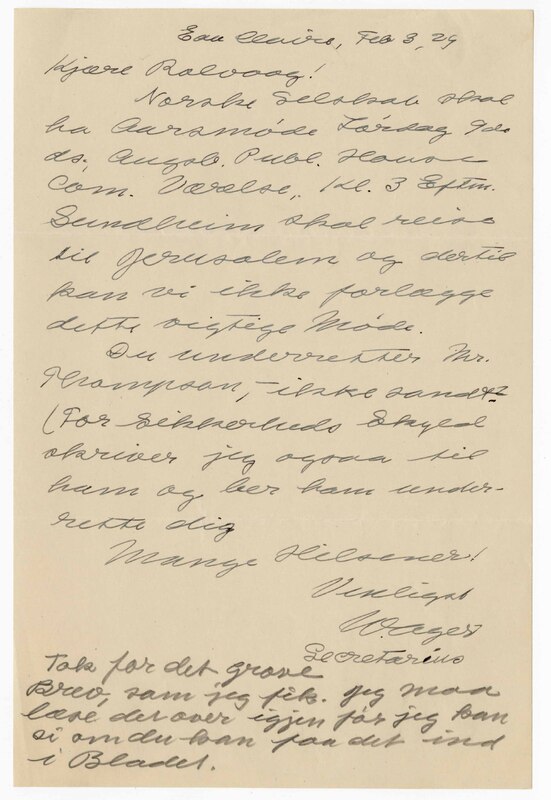 Eau Claire, Feb 3, 29
Kjære Rolvaag!
Norske Selskab skal
ha Aarsmøde Lørdag 9de
ds, Augsb. Publ. House
Com. Værelse, Kl. 3 Eftm.
Sundheim skal reise
til Jerusalem og dertil
kan vi ikke forlægge
dette vigtige Møde.
Du underretter Mr.
Thompson, – ikke sandt?
(For Sikkerheds Skyld
skriver jeg ogsaa til
ham og ber ham under-
rette dig
Mange Hilsener!
Venligst
W. Ager
Secretarius
Tak for det grove
Brev, som jeg fik. Jeg maa
læse det over igjen før jeg kan
si om du kan faa det ind
i Bladet.